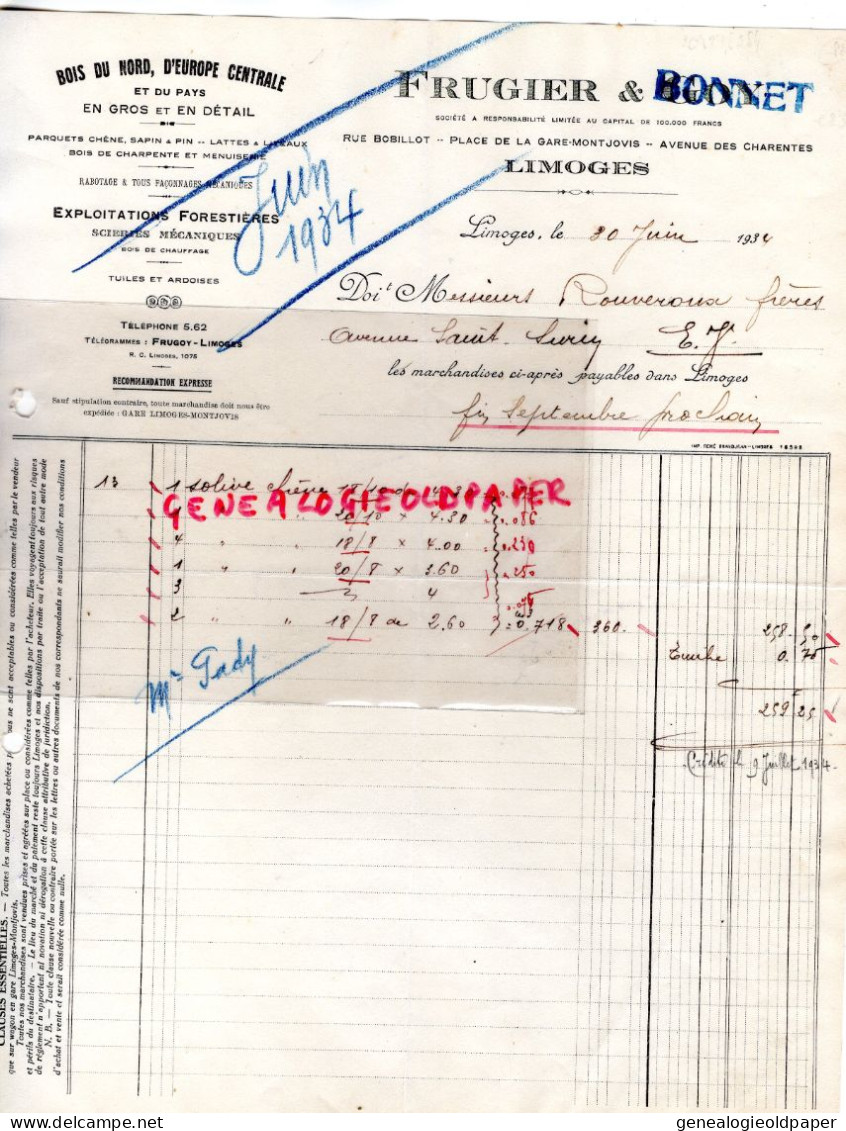 BOIS DU NORD, D'EUROPE CENTRALE
ET DU PAYS
EN GROS ET EN DÉTAIL
PARQUETS CHÊNE, SAPIN & PIN -- LATTES & LITEAUX
BOIS DE CHARPENTE ET MENUISERIE
RABOTAGE & TOUS FAÇONNAGES MÉCANIQUES
EXPLOITATIONS FORESTIÈRES
SCIERIES MÉCANIQUES
BOIS DE CHAUFFAGE
TUILES ET ARDOISES
TÉLÉPHONE 5.62
TÉLÉGRAMMES : FRUGOY-LIMOGES
R. C. LIMOGES, 1075
RECOMMANDATION EXPRESSE
Sauf stipulation contraire, toute marchandise doit nous être
expédiée : GARE LIMOGES-MONTJOVIS
Juin
1934
FRUGIER & GOY
BONNET
SOCIÉTÉ A RESPONSABILITÉ LIMITÉE AU CAPITAL DE 100.000 FRANCS
RUE BOBILLOT -- PLACE DE LA GARE-MONTJOVIS -- AVENUE DES CHARENTES
LIMOGES
Limoges, le 30 Juin 1934
Doit Messieurs Rouveroux frères
Avenue Saint-Surin E. V.
les marchandises ci-après payables dans Limoges
fin Septembre prochain
13 1 solive
GENEALOGIEOLDPAPER
20/10 x 4.30 .086
4 " " 18/8 x 4.00 .230
1 " " 20/8 x 3.60 .250
3 4
2 " " 18/8 de 2.60 = 0.718 360. 258.50
Timbre 0.75
259 25
Crédité le 9 Juillet 1934.
Mr Tady
CLAUSES ESSENTIELLES. — Toutes les marchandises achetées par nous ne sont acceptables ou considérées comme telles par le vendeur
que sur wagon en gare Limoges-Montjovis.
Toutes nos marchandises sont vendues prises et agréées sur place ou considérées comme telles par l'acheteur. Elles voyagent toujours aux risques
et périls du destinataire. — Le lieu du marché et du paiement reste toujours Limoges et nos dispositions par traite ou l'acceptation de tout autre mode
de règlement n'apportent ni novation ni dérogation à cette clause attributive de juridiction.
N. B. — Toute clause nouvelle ou contraire portée sur les lettres ou autres documents de nos correspondants ne saurait modifier nos conditions
d'achat et vente et serait considérée comme nulle.
genealogieoldpaper